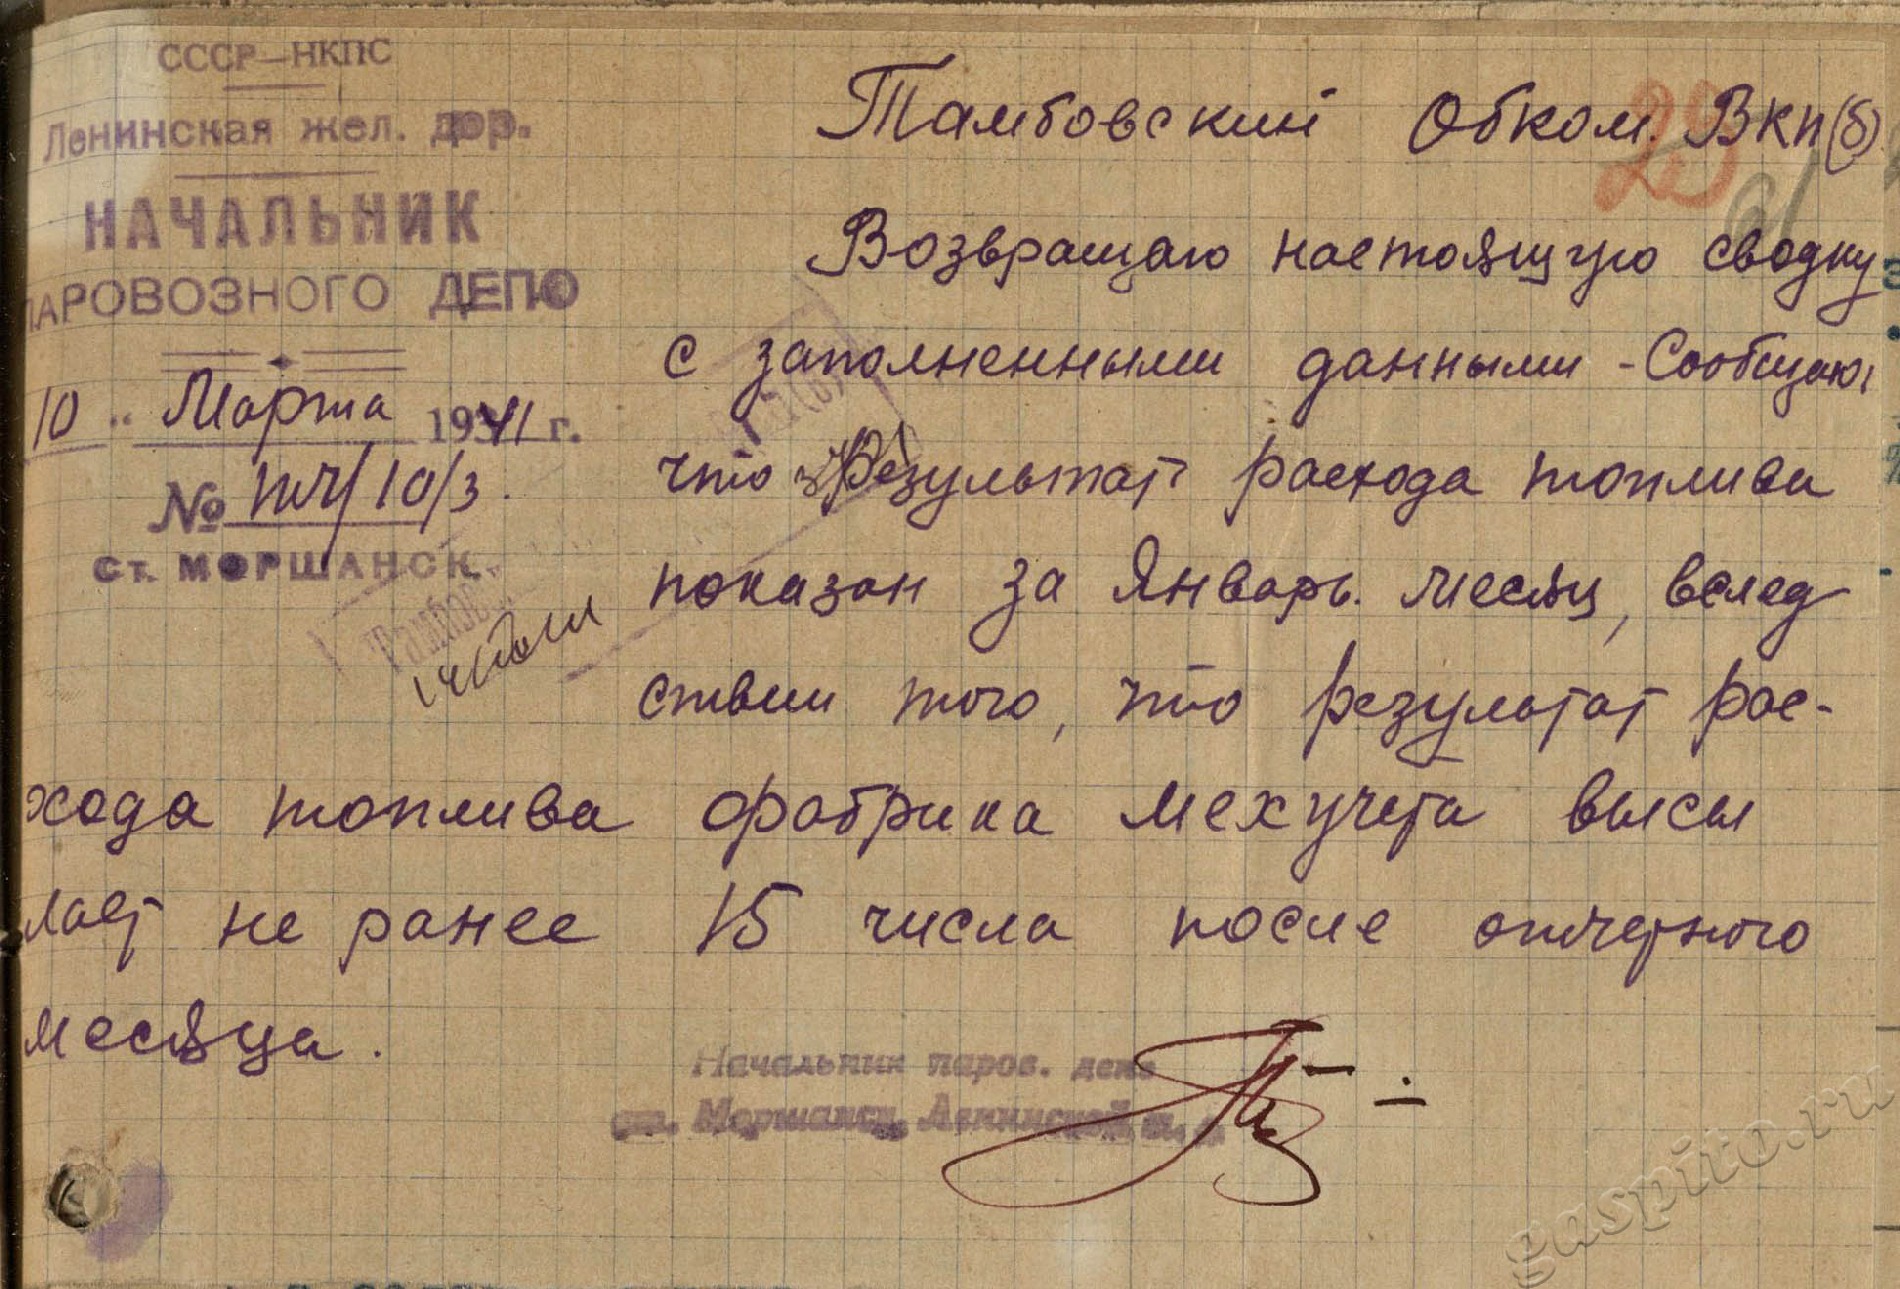 СССР—НКПС
Ленинская жел. дор.
НАЧАЛЬНИК
ПАРОВОЗНОГО ДЕПО
10 " Марта 1941 г.
№ тч/10/3.
ст. МОРШАНСК.
Тамбовский Обком. Вкп(б)
25
61
Возвращаю настоящую сводку
с заполненными данными - Сообщаю,
что результат расхода топлива
показан за Январь. месяц, вслед
ствии того, что результат рас-
хода топлива фабрика мехучета высы
лает не ранее 15 числа после отчетного
месяца.
Начальник паров. депо
ст. Моршанск, Ленинской ж. д.
gaspito.ru